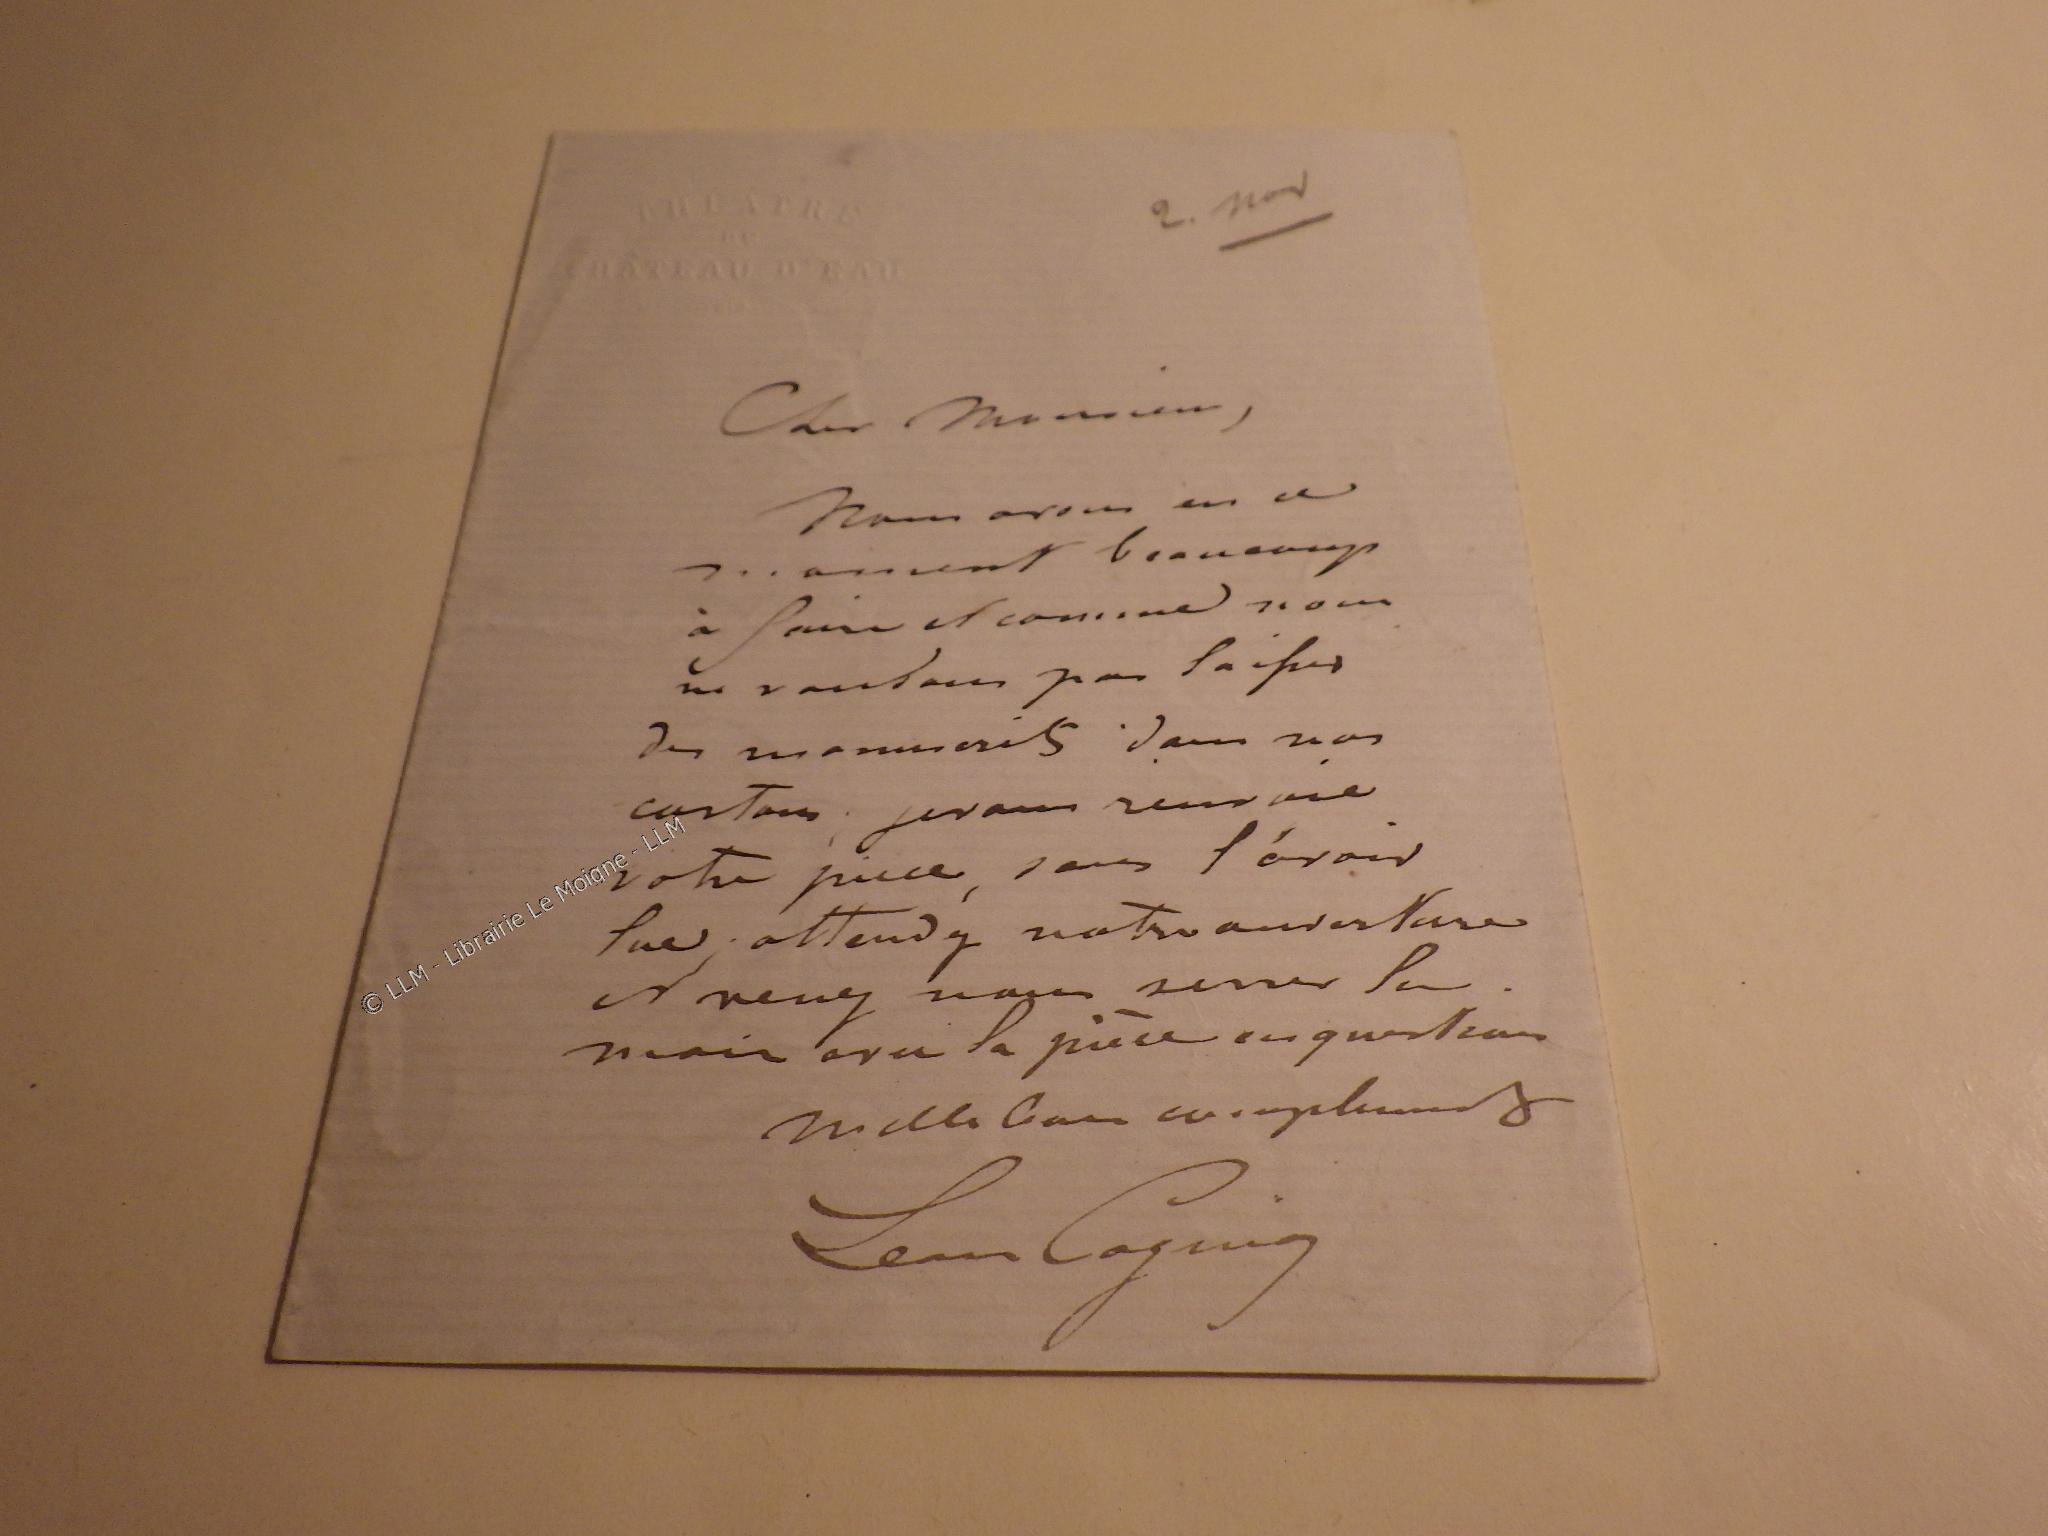 THEATRE
DU
CHÂTEAU D'EAU
2. Nov
Cher Monsieur,
Nous avons en ce
moment beaucoup
à faire et comme nous
ne voulons pas laisser
des manuscrits dans nos
cartons, je vous renvoie
votre pièce, sans l'avoir
lue, attendez notre ouverture
et venez nous serrer la
main avec la pièce en question
Mille bons compliments
© LLM - Librairie Le Moigne - LLM